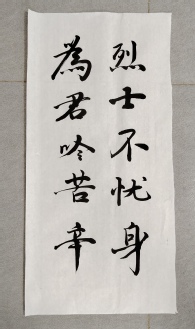 烈士不忧身
為君吟苦辛